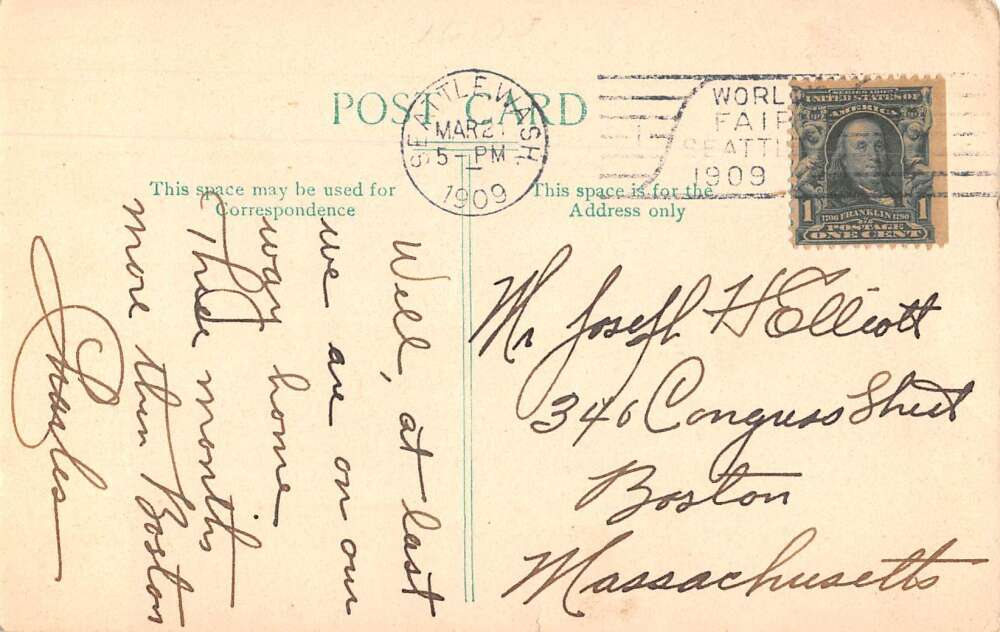 POST CARD
SEATTLE, WASH.
MAR 21
5 - PM
1909
WORLD
FAIR
SEATTLE
1909
SERIES 1902
UNITED STATES OF
AMERICA
1 1
1706 FRANKLIN 1790
POSTAGE
ONE CENT
This space may be used for
Correspondence
This space is for the
Address only
Well, at last
we are on our
way home
Three months
more then Boston
Charles
Mr Joseph H Elliott
346 Congress Street
Boston
Massachusetts